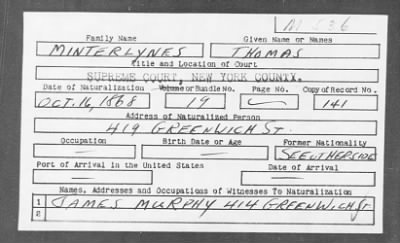 M 536
Family Name Given Name or Names
MINTERLYNES THOMAS
Title and Location of Court
SUPREME COURT, NEW YORK COUNTY.
Date of Naturalization Volume or Bundle No. Page No. Copy of Record No.
OCT. 16, 1868 19 141
Address of Naturalized Person
419 GREENWICH ST.
Occupation Birth Date or Age Former Nationality
SEE OTHERSIDE
Port of Arrival in the United States Date of Arrival
Names, Addresses and Occupations of Witnesses To Naturalization
1 JAMES MURPHY 414 GREENWICH ST
2